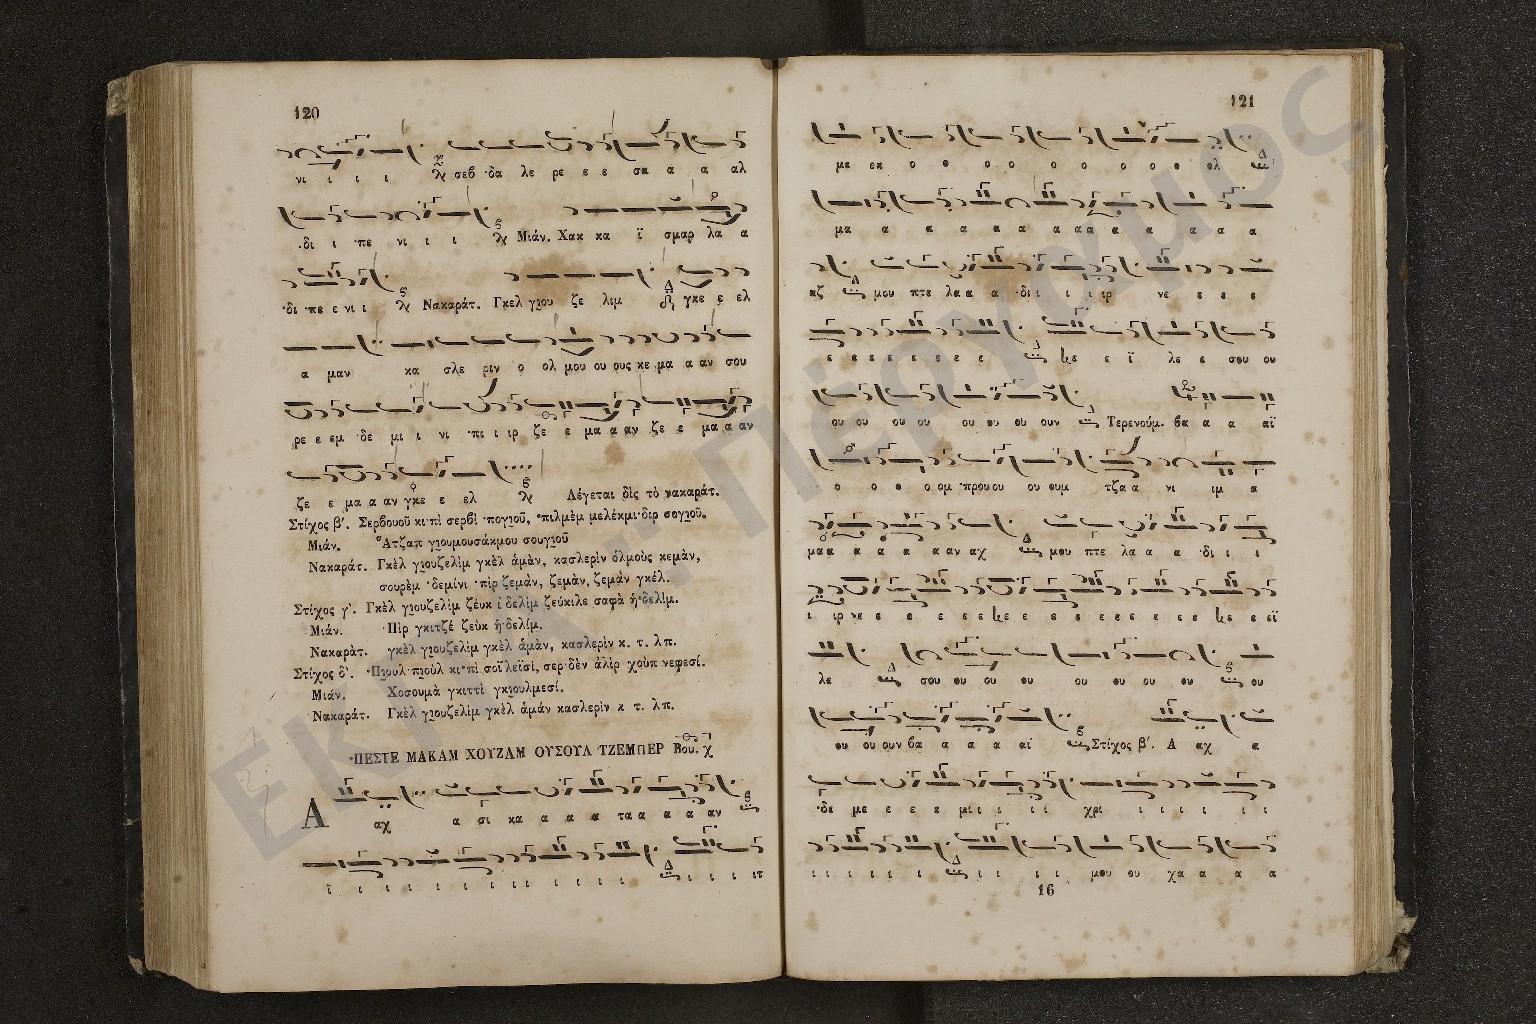 120
νι ι ι ι σεβ ·δα λε ρε ε ε σα α α αλ
·δι ι ·πε νι ι ι Μιάν. Χακ κα ϊ σμαρ λα α
·δι ·πε ε νι ι Νακαράτ. Γκελ γιου ζε λιμ γκε ε ελ
α μαν κα σλε ριν ο ολ μου ου ους κε μα α αν σου
ρε ε εμ ·δε μι ι νι ·πι ι ιρ ζε ε μα α αν ζε ε μα α αν
ζε ε μα α αν γκε ε ελ Λέγεται δὶς τὸ νακαράτ.
Στίχος β′. Σερβουοῦ κι·πὶ σερβὶ ·πογιοῦ, ·πιλμὲμ μελέκμι·διρ σογιοῦ.
Μιάν. Ἀτζαπ γιουμουσάκμου σουγιοῦ
Νακαράτ. Γκὲλ γιουζελὶμ γκὲλ ἀμὰν, κασλερὶν ὀλμοὺς κεμὰν,
σουρὲμ ·δεμίνι ·πὶρ ζεμὰν, ζεμὰν, ζεμὰν γκέλ.
Στίχος γ′. Γκὲλ γιουζελὶμ ζέυκ ἰ·δελὶμ ζεύκιλε σαφὰ ἠ·δελὶμ.
Μιάν. ·Πὶρ γκιτζέ ζεὺκ ἠ·δελίμ.
Νακαράτ. γκὲλ γιουζελὶμ γκὲλ ἀμὰν, κασλερὶν κ. τ. λπ.
Στίχος δ′. ·Πιουλ·πιοὺλ κι·πὶ σοϊλεϊσί, σερ·δὲν ἀλὶρ χοὺπ νεφεσί.
Μιάν. Χοσουμὰ γκιττὶ γκιουλμεσί.
Νακαράτ. Γκὲλ γιουζελὶμ γκὲλ ἀμάν κασλερὶν κ τ. λπ.
·ΠΕΣΤΕ ΜΑΚΑΜ ΧΟΥΖΑΜ ΟΥΣΟΥΛ ΤΖΕΜΠΕΡ Βου.
Α αχ α σι κα α α α τα α α α αν
ϊ ι ι ι ι ι ι ι ι ι ι ι ι ι ι ι ιτ
121
με εκ ο ο ο ο ο ο ο ο ο ολ
μα α α α α α α α α α α α α
αζ μου πτε λα α α ·δι ι ι ι ιρ νε ε ε ε
ε ε ε ε ε ε ε ε ε ε ϊ λε ε σου ου
ου ου ου ου ου ου ου ουν Τερενούμ. βα α α αϊ
ο ο ο ο ομ ·πρου ου ου ουμ τζα α νι ιμ α
μα α α α α α αν αχ μου πτε λα α α ·δι ι ι
ι ιρ νε ε ε ε ε ε ε ε ε ε ε ε ε ε ε εϊ
λε σου ου ου ου ου ου ου ου ου
ου ου ουν βα α α α αϊ Στίχος β′. Α αχ α
·δι με ε ε ε μι ι ι ι χρι ι ι ι ι ι
ι ι ι ι ι ι ι ι ι μου ου χα α α α
16
ΕΚΠΑ: Πέργαμος